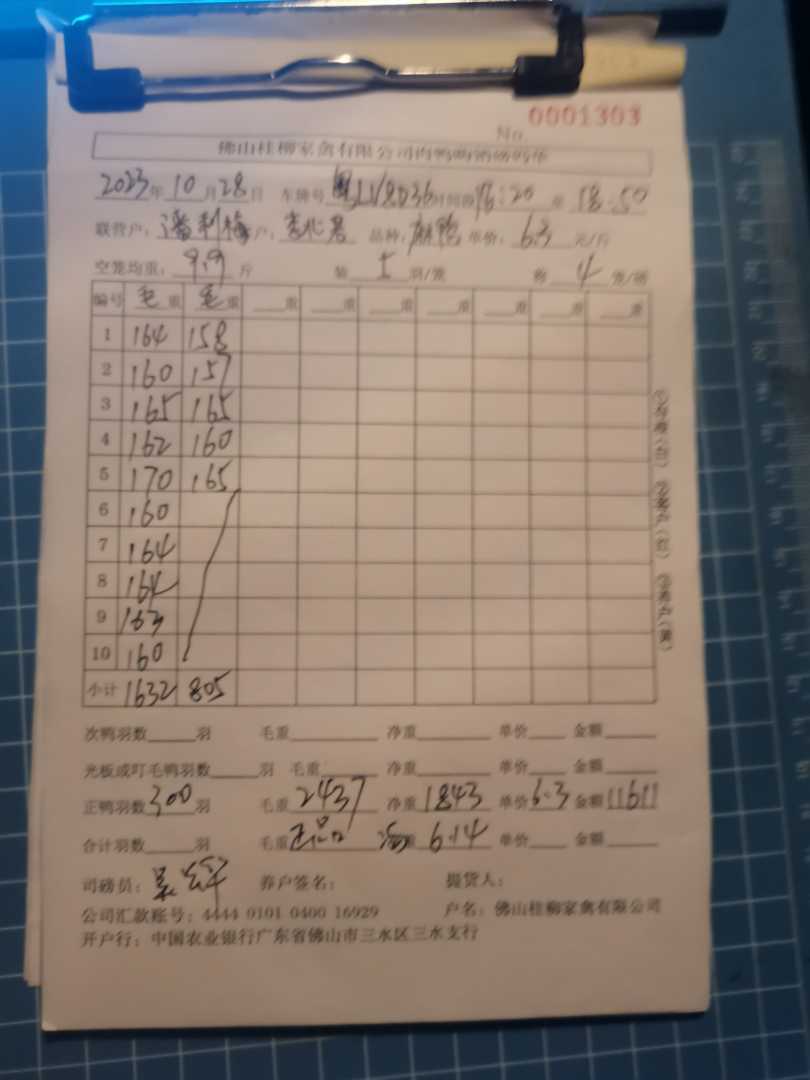 No 0001303
佛山桂柳家禽有限公司肉鸭购销磅码单
2023年10月28日 车牌号 时间段16:20至18:50
联营户: 潘利梅 户: 品种: 麻鸭 单价: 6.3 元/斤
空笼均重: 9.9 斤 装 5 羽/笼 称 4 笼/磅
编号 毛重 毛重 重 重 重 重 重 重 重
1 164 158
2 160 157
3 165 165
4 162 160
5 170 165
6 160
7 164
8 164
9 163
10 160
小计 1632 805
次鸭羽数 羽 毛重 净重 单价 金额
光板或叮毛鸭羽数 羽 毛重 净重 单价 金额
正鸭羽数 300 羽 毛重 2437 净重 1843 单价 6.3 金额 11611
合计羽数 羽 毛重 正品 重 6.14 单价 金额
司磅员: 养户签名: 提货人:
公司汇款账号: 4444 0101 0400 16929 户名: 佛山桂柳家禽有限公司
开户行: 中国农业银行广东省佛山市三水区三水支行